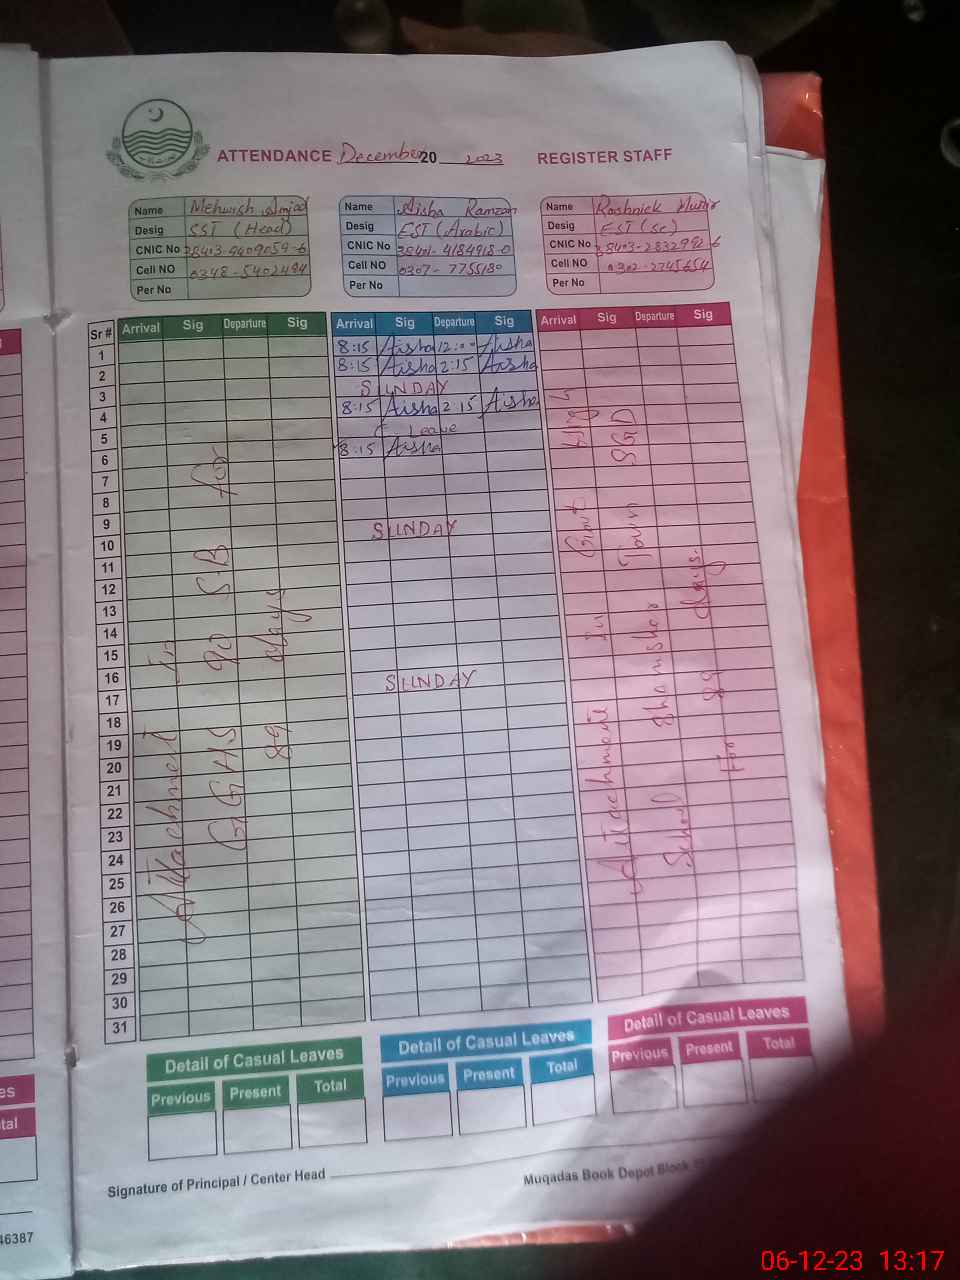 ATTENDANCE December 20 2023 REGISTER STAFF
Name Mehwish Amjad
Desig SST (Head)
CNIC No 38403-9409059-6
Cell NO 0348-5402494
Per No
Name Aisha Ramzan
Desig EST (Arabic)
CNIC No 38401-4184918-0
Cell NO 0307-7755180
Per No
Name Roshnick Munir
Desig EST (Sc)
CNIC No 38403-2832992-6
Cell NO 0302-2745654
Per No
Sr # Arrival Sig Departure Sig Arrival Sig Departure Sig Arrival Sig Departure Sig
1 8:15 Aisha 12:00 Aisha
2 8:15 Aisha 2:15 Aisha
3 SUNDAY
4 8:15 Aisha 2 15 Aisha
5 C Leave
6 8:15 Aisha
7
8
9
10 SUNDAY
11
12
13
14
15
16
17 SUNDAY
18
19
20
21
22
23
24
25
26
27
28
29
30
31
Attachmet in
GGHS 90 S.B for
89 days
Attachment In Govt High
School Shamsher Town SGD
For 89 days.
Detail of Casual Leaves
Previous Present Total
Detail of Casual Leaves
Previous Present Total
Detail of Casual Leaves
Previous Present Total
Signature of Principal / Center Head
Muqadas Book Depot Block
46387
06-12-23 13:17